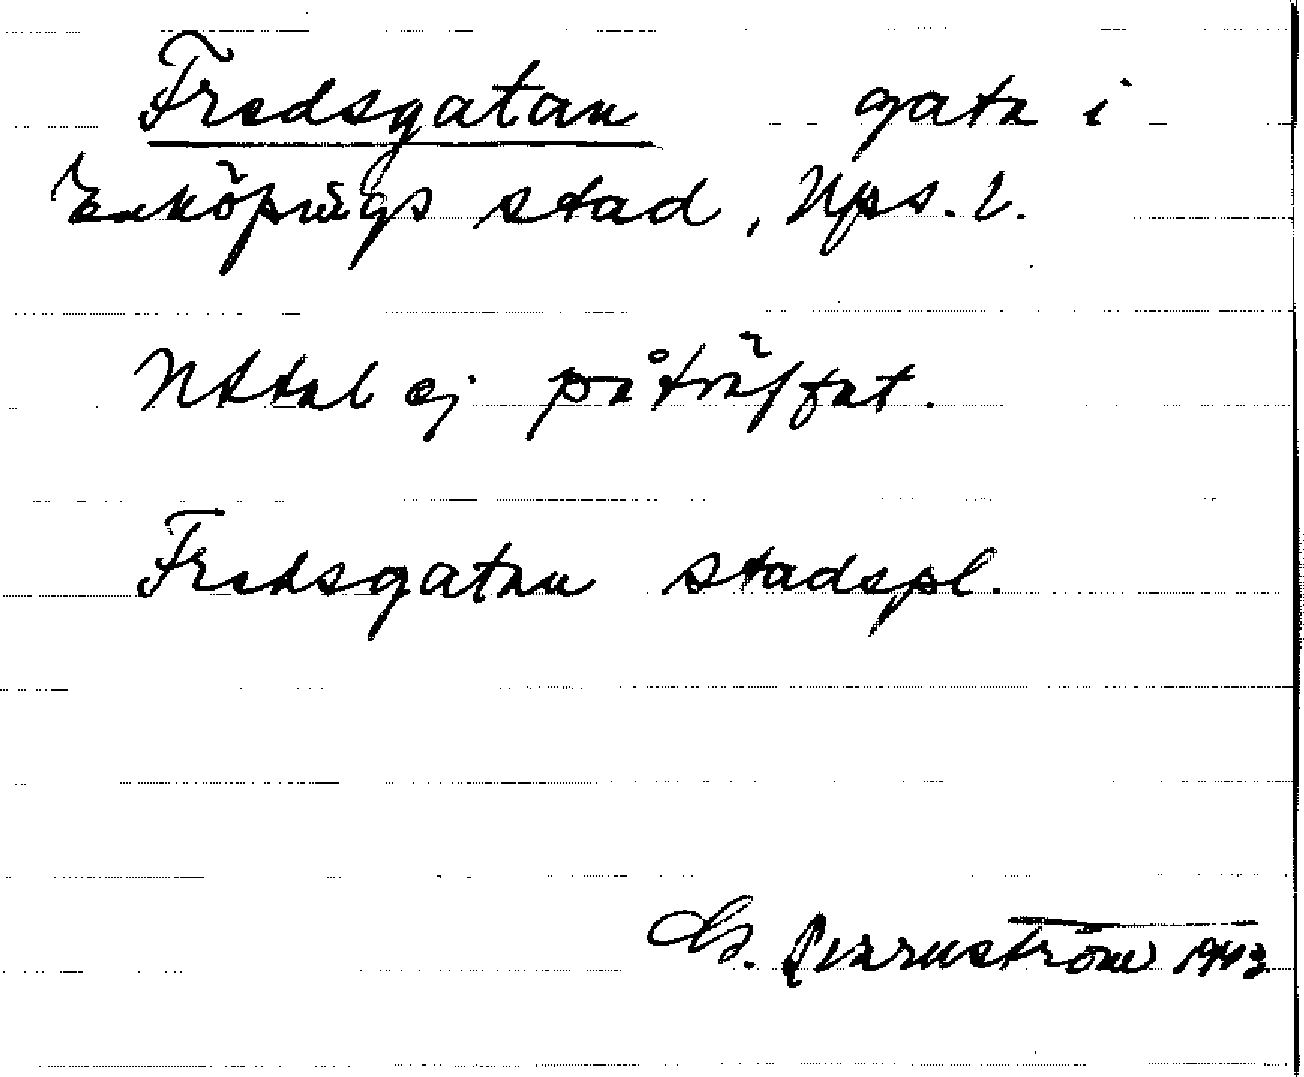 Fredsgatan gata i
Enköpings stad, Ups. l.
Uttal ej påträffat.
Fredsgatan stadspl.
G. Qvarnström 1943